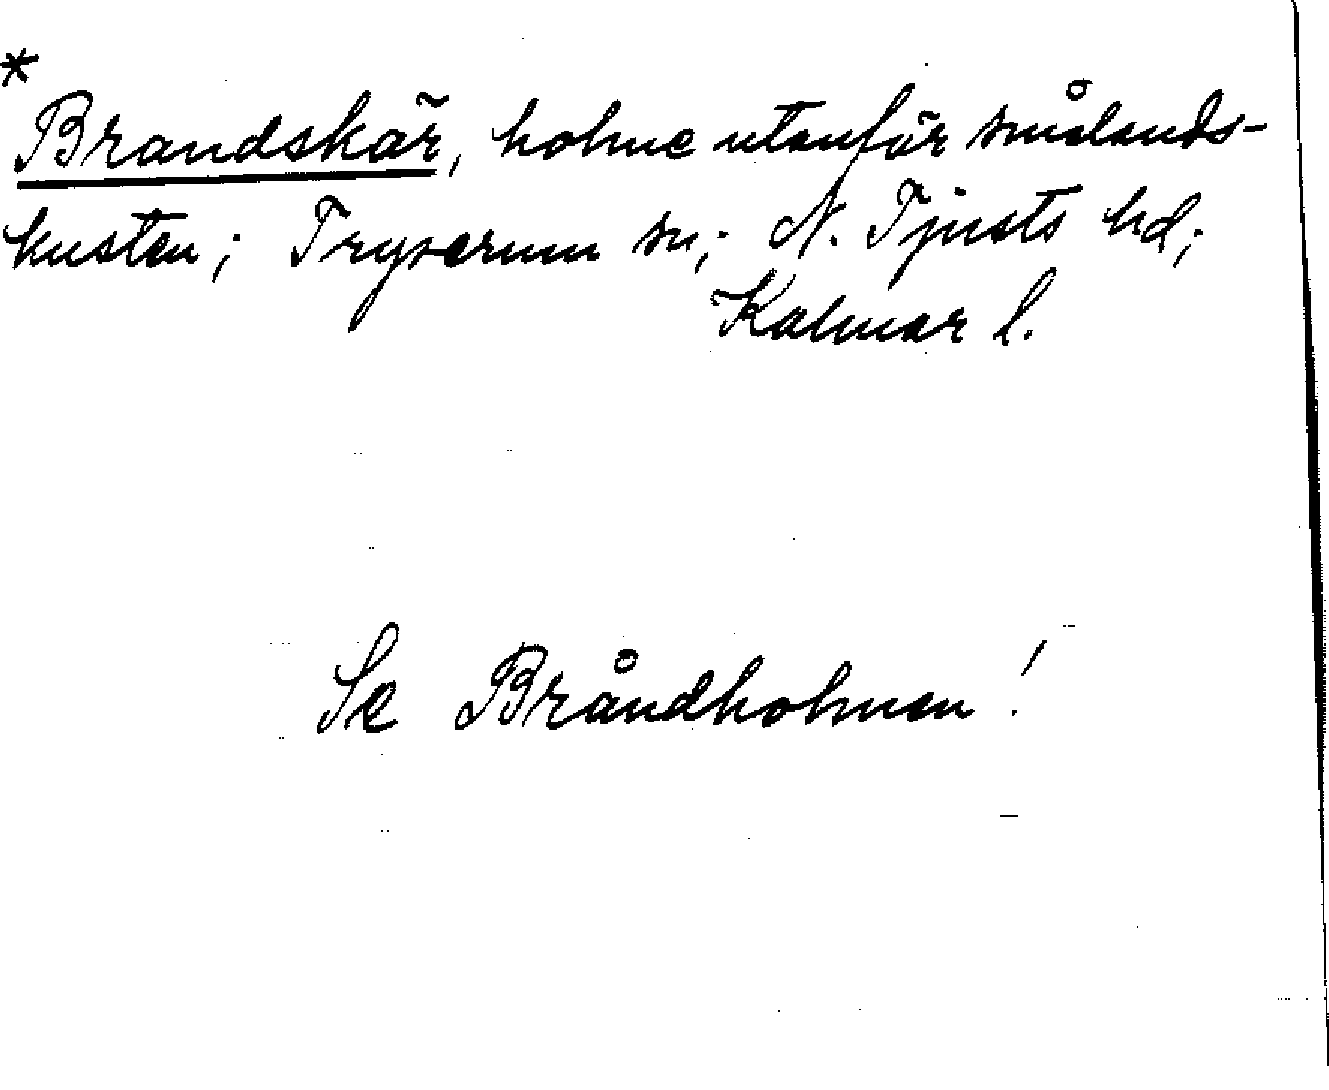 *
Brandskär, holme utanför smålands-
kusten; Tryserum sn; N. Tjusts hd;
Kalmar l.
Se Båndholmen!